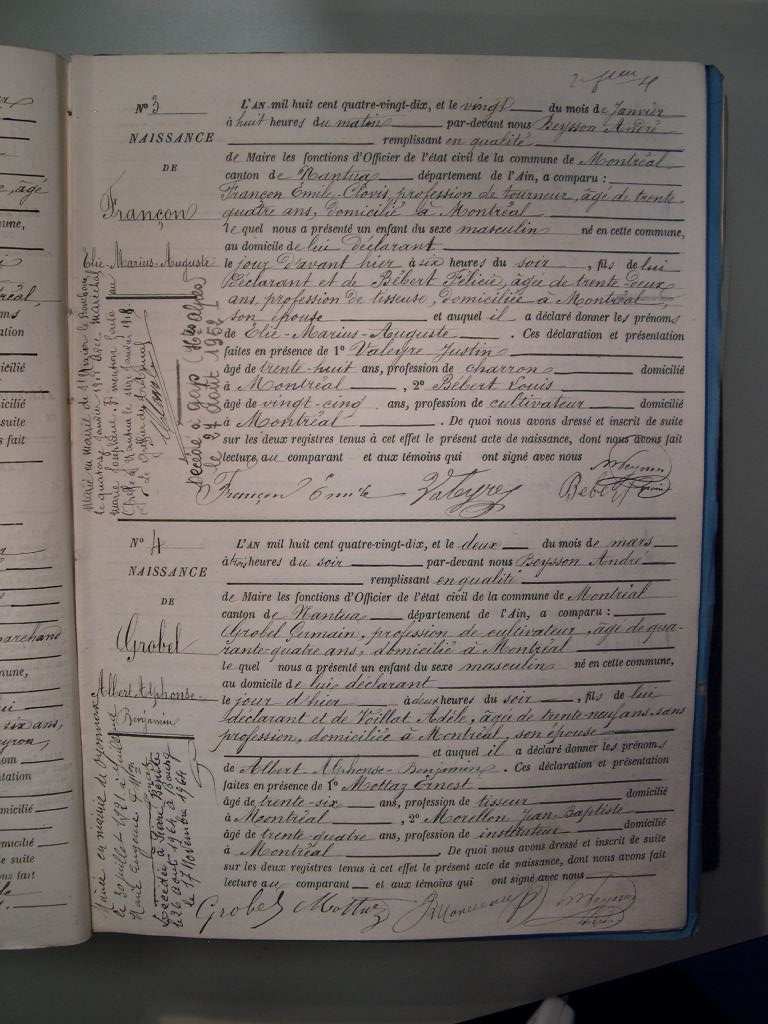 N° 3
NAISSANCE
DE
Françon
Elie-Marius-Auguste
L'AN mil huit cent quatre-vingt-dix, et le vingt du mois de Janvier
à huit heures du matin par-devant nous Beysson André
remplissant en qualité
de Maire les fonctions d'Officier de l'état civil de la commune de Montréal
canton de Nantua département de l'Ain, a comparu :
Françon Emile Clovis, profession de tourneur, âgé de trente
quatre ans, domicilié à Montréal
lequel nous a présenté un enfant du sexe masculin né en cette commune,
au domicile de lui déclarant
le jour d'avant hier à six heures du soir, fils de lui
déclarant et de Bébert Félicie, âgée de trente deux
ans, profession de tisseuse, domiciliée à Montréal
son épouse et auquel il a déclaré donner les prénoms
de Elie-Marius-Auguste. Ces déclaration et présentation
faites en présence de 1° Valeyre Justin
âgé de trente-huit ans, profession de charron domicilié
à Montréal, 2° Bébert Louis
âgé de vingt-cinq ans, profession de cultivateur domicilié
à Montréal. De quoi nous avons dressé et inscrit de suite
sur les deux registres tenus à cet effet le présent acte de naissance, dont nous avons fait
lecture au comparant et aux témoins qui ont signé avec nous
Françon Emile Valeyre
Marié en mairie de
le quatorze janvier 1918 avec
Décédé à Gap (Htes Alpes)
le 27 août 1952
N° 4
NAISSANCE
DE
Grobel
Albert Alphonse-
Benjamin
L'AN mil huit cent quatre-vingt-dix, et le deux du mois de mars
à heures du soir par-devant nous Beysson André
remplissant en qualité
de Maire les fonctions d'Officier de l'état civil de la commune de Montréal
canton de Nantua département de l'Ain, a comparu :
Grobel Germain, profession de cultivateur, âgé de qua-
rante-quatre ans, domicilié à Montréal
lequel nous a présenté un enfant du sexe masculin né en cette commune,
au domicile de lui déclarant
le jour d'hier à deux heures du soir, fils de lui
déclarant et de Voillat Adèle, âgée de trente neuf ans, sans
profession, domiciliée à Montréal, son épouse
et auquel il a déclaré donner les prénoms
de Albert-Alphonse-Benjamin. Ces déclaration et présentation
faites en présence de 1° Mottaz Ernest
âgé de trente-six ans, profession de tisseur domicilié
à Montréal, 2° Morellon Jean Baptiste
âgé de trente-quatre ans, profession de instituteur domicilié
à Montréal. De quoi nous avons dressé et inscrit de suite
sur les deux registres tenus à cet effet le présent acte de naissance, dont nous avons fait
lecture au comparant et aux témoins qui ont signé avec nous
Grobel
Marié en mairie de Oyonnax
le 30 juillet
Marie Eugénie
le 26 août 1964 à Bourg
le 17 Novembre 1964